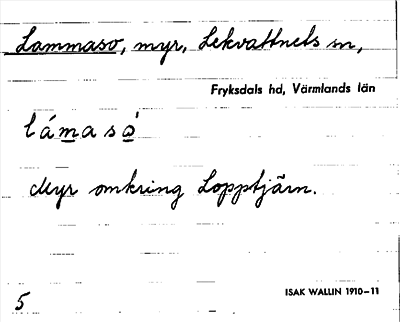 Lammaso, myr, Lekvattnets sn,
Fryksdals hd, Värmlands län
lámasọ̀
Myr omkring Lopptjärn.
ISAK WALLIN 1910–11
5